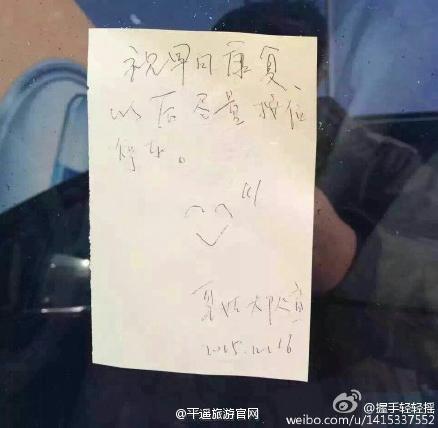 祝早日康复、
以后尽量按位
停车。
2015.12.16
@平遥旅游官网
@握手轻轻摇
weibo.com/u/1415337552